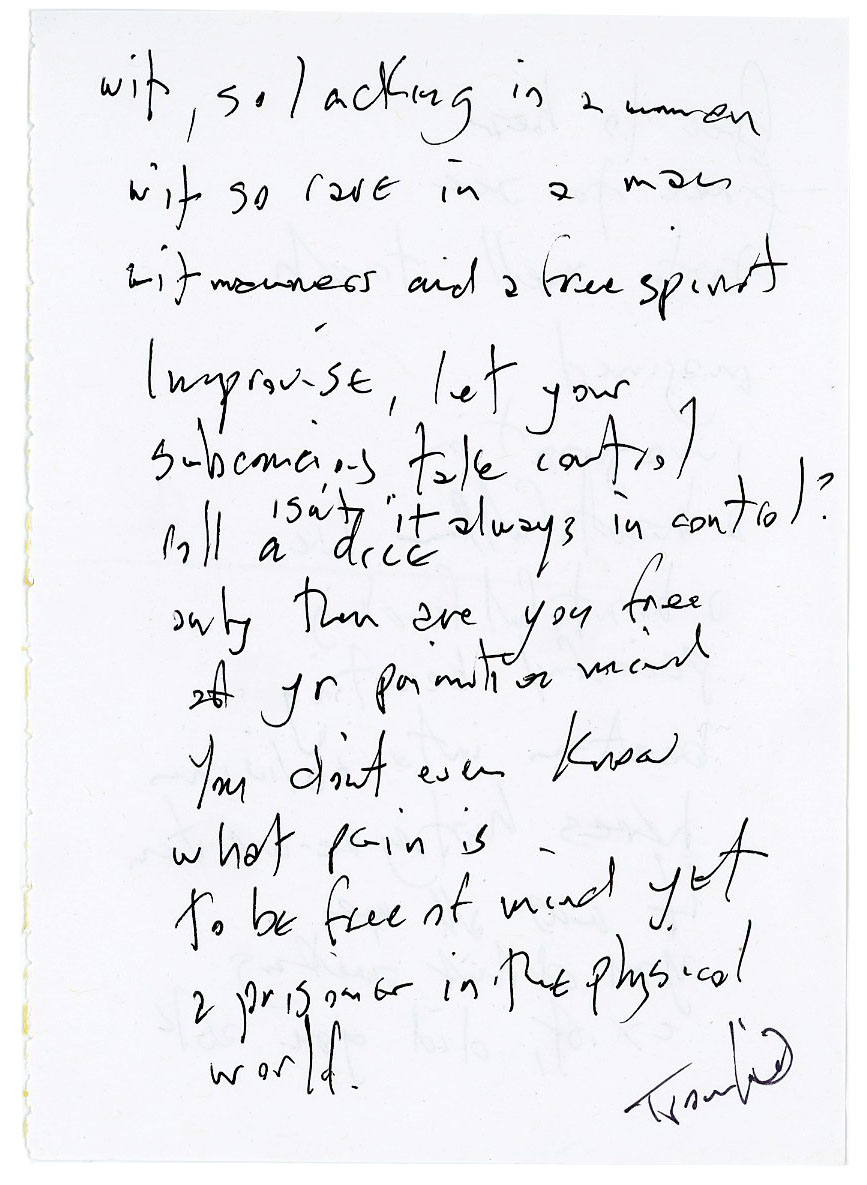 wit, so lacking in a woman
wit so rare in a man
wit manners and a free spirit
Improvise, let your
subconcious take control
isn't it always in control?
roll a dice
only then are you free
of yr primitive mind
You dont even know
what pain is
To be free of mind yet
a prisoner in the physical
world.